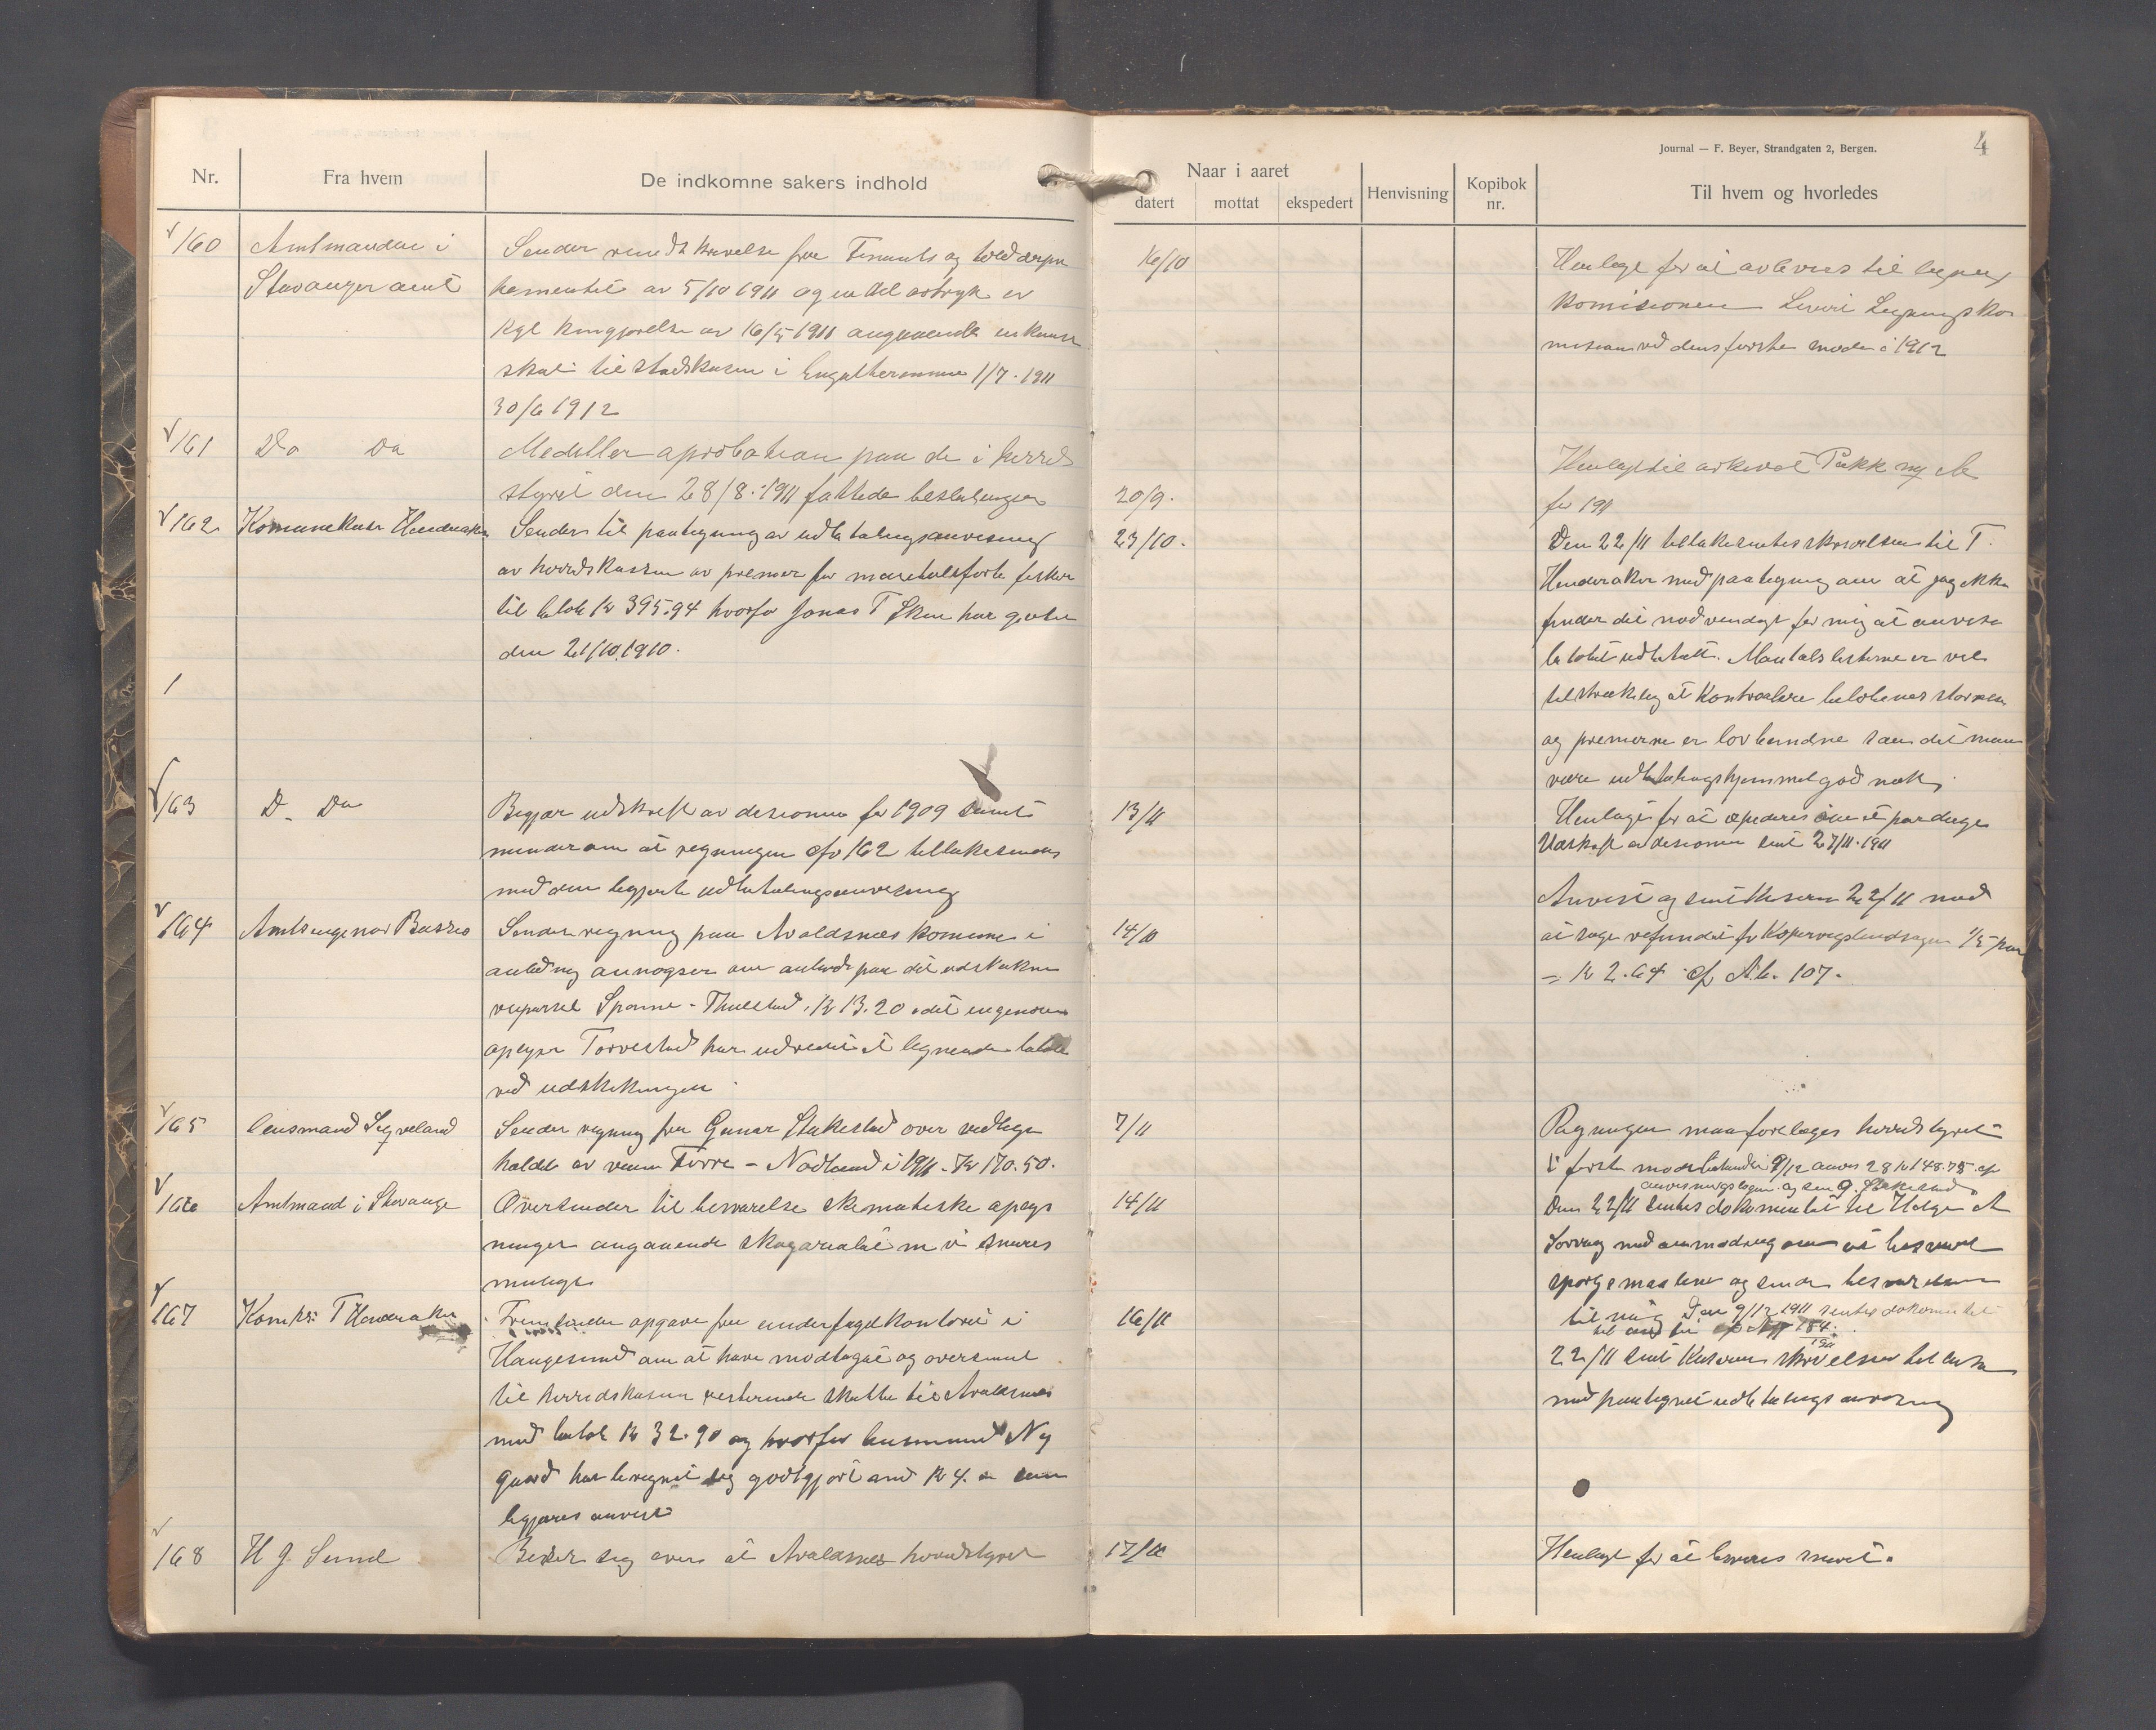 Journal — F. Beyer, Strandgaten 2, Bergen.
4
Nr.
Fra hvem
De indkomne sakers indhold
Naar i aaret
datert
mottat
ekspedert
Henvisning
Kopibok nr.
Til hvem og hvorledes
160
Amtmanden i
Stavanger amt
Sender rundskrivelse fra Finants og tolddepar
tementet av 5/10 1911 og en del avtryk av
Kgl kungjørelse av 16/5 1911 angaaende
skat til statskassen i 1/7 - 1911
30/6 1912
16/10
Henlagt for at avleveres til ligning
komisionen Ligningsko
misionen ved dens første møde i 1912
161
Do Do
Meddeler aprobation paa de i herreds
styret den 28/8 - 1911 fattede beslutninger
20/9.
Henlagt til arkivet Pakke
for 1911
162
Komunekaser Henderaker
Sender til paategning av udbetalingsanvisning
av herredskassen av premier for manntalsførte fisker
til beløb Kr 395.94 hvorfor Jonas T
den 21/10 1910.
23/10.
Den 22/11 tilbakesentes skrivelsen til T.
Henderaker med paategning om at jeg ikke
finder det nødvendigt for mig at anvise
beløbet udbetalt. Mantalslisterne er vel
tilstrækelig at kontrolere beløbenes størrelse
og premierne er lovbundne saa det maa
være udbetalingshjemmel god nok.
163
D. Do
Begjær udskrift av desisionen for 1909 samt
minder om at regningen cfr 162 tilbakesendes
med den begjærte udbetalingsanvisning
13/11
Henlagt for at expederes om et par dage
Udskrift av desisionen sent 27/11 - 1911
164
Amtsingeniør Basso
Sender regning paa Avaldsnes komune i
anledning annonser om anbud paa det udstukne
veiparsel Spanne - Thuestad, Kr 13.20, idet ingeniøren
oplyser Torvestad har udredet et lignende beløb
ved udstikningen
14/11
Anvist og sent Kaseren 22/11 med
at søge refundert fra Kopervig landsogn 1/5 part
= Kr 2.64 cfr A.b. 107.
165
Lensmand Sigveland
Sender regning fra Gunar Stakestad over vedlige
holdet av veien Førre - Nodland i 1911. Kr 170.50.
7/11
Regningen maa forelægges herredstyret
i første møde 9/12 anvis 28 Kr 148.75 cfr
anvisningsbogen og sen G. Stakestad
166
Amtmand i Stavanger
Oversender til besvarelse skematiske oplys
ninger angaaende skogarealet m v snares
muligt.
14/11
Den 22/11 sentes dokumentet til Helge A
med anmodning om at besvare
spørgsmaalene og sende besvarelsen
til mig Den 9/12 1911 sentes dokumentet
184.
167
Komks: T Henderaker
Fremsender opgave fra underfogdkontoret i
Haugesund om at have modtaget og oversent
til herredskassen resterende skatte til Avaldsnes
med beløb Kr 32.90 og hvorfor lensmand Ny
gaard har beregnet sig godtgjort med Kr 4. som
begjæres anvist
16/11
22/11 sent Kaseren skrivelsen tilbake
med paategnet udbetalings anvisning
168
H J Sund
Beder sig over at Avaldsnes herredstyret
17/11
Henlagt for at besvares snarest.